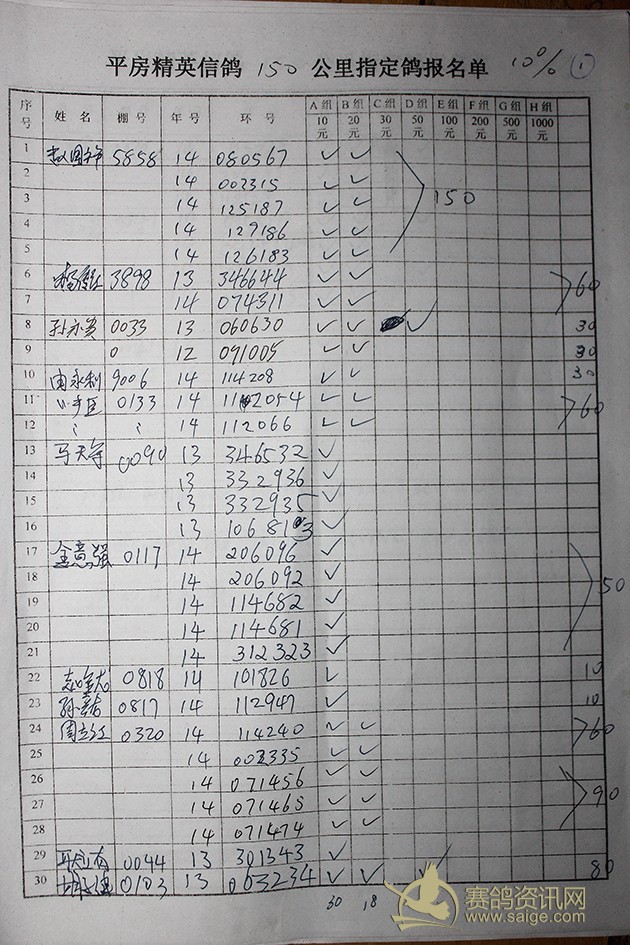 平房精英信鸽 150 公里指定鸽报名单 10% ①
序号 姓名 棚号 年号 环号 A组 B组 C组 D组 E组 F组 G组 H组
10元 20元 30元 50元 100元 200元 500元 1000元
1 5858 14 080567 ✓ ✓
2 14 002315 ✓ ✓
3 14 125187 ✓ ✓ 150
4 14 129186 ✓ ✓
5 14 126183 ✓ ✓
6 3898 13 346644 ✓ ✓ 60
7 14 074311 ✓ ✓
8 孙亦贵 0033 13 060630 ✓ ✓ ✓ 30
9 0 12 091005 ✓ ✓ 30
10 由永利 9006 14 114208 ✓ ✓ 30
11 0133 14 112054 ✓ ✓ 60
12 14 112066 ✓ ✓
13 马天 0090 13 346532 ✓
14 13 332936 ✓
15 13 332935 ✓
16 13 106813 ✓
17 金意强 0117 14 206096 ✓
18 14 206092 ✓ 50
19 14 114682 ✓
20 14 114681 ✓
21 14 312323 ✓
22 0818 14 101826 ✓ 10
23 0817 14 112947 ✓ 10
24 周立江 0320 14 114240 ✓ ✓ 60
25 14 003335 ✓ ✓
26 14 071456 ✓ ✓
27 14 071465 ✓ ✓ 90
28 14 071474 ✓ ✓
29 0044 13 301343 ✓
30 0103 13 063234 ✓ ✓ ✓ 80
30 18
赛鸽资讯网
www.saige.com